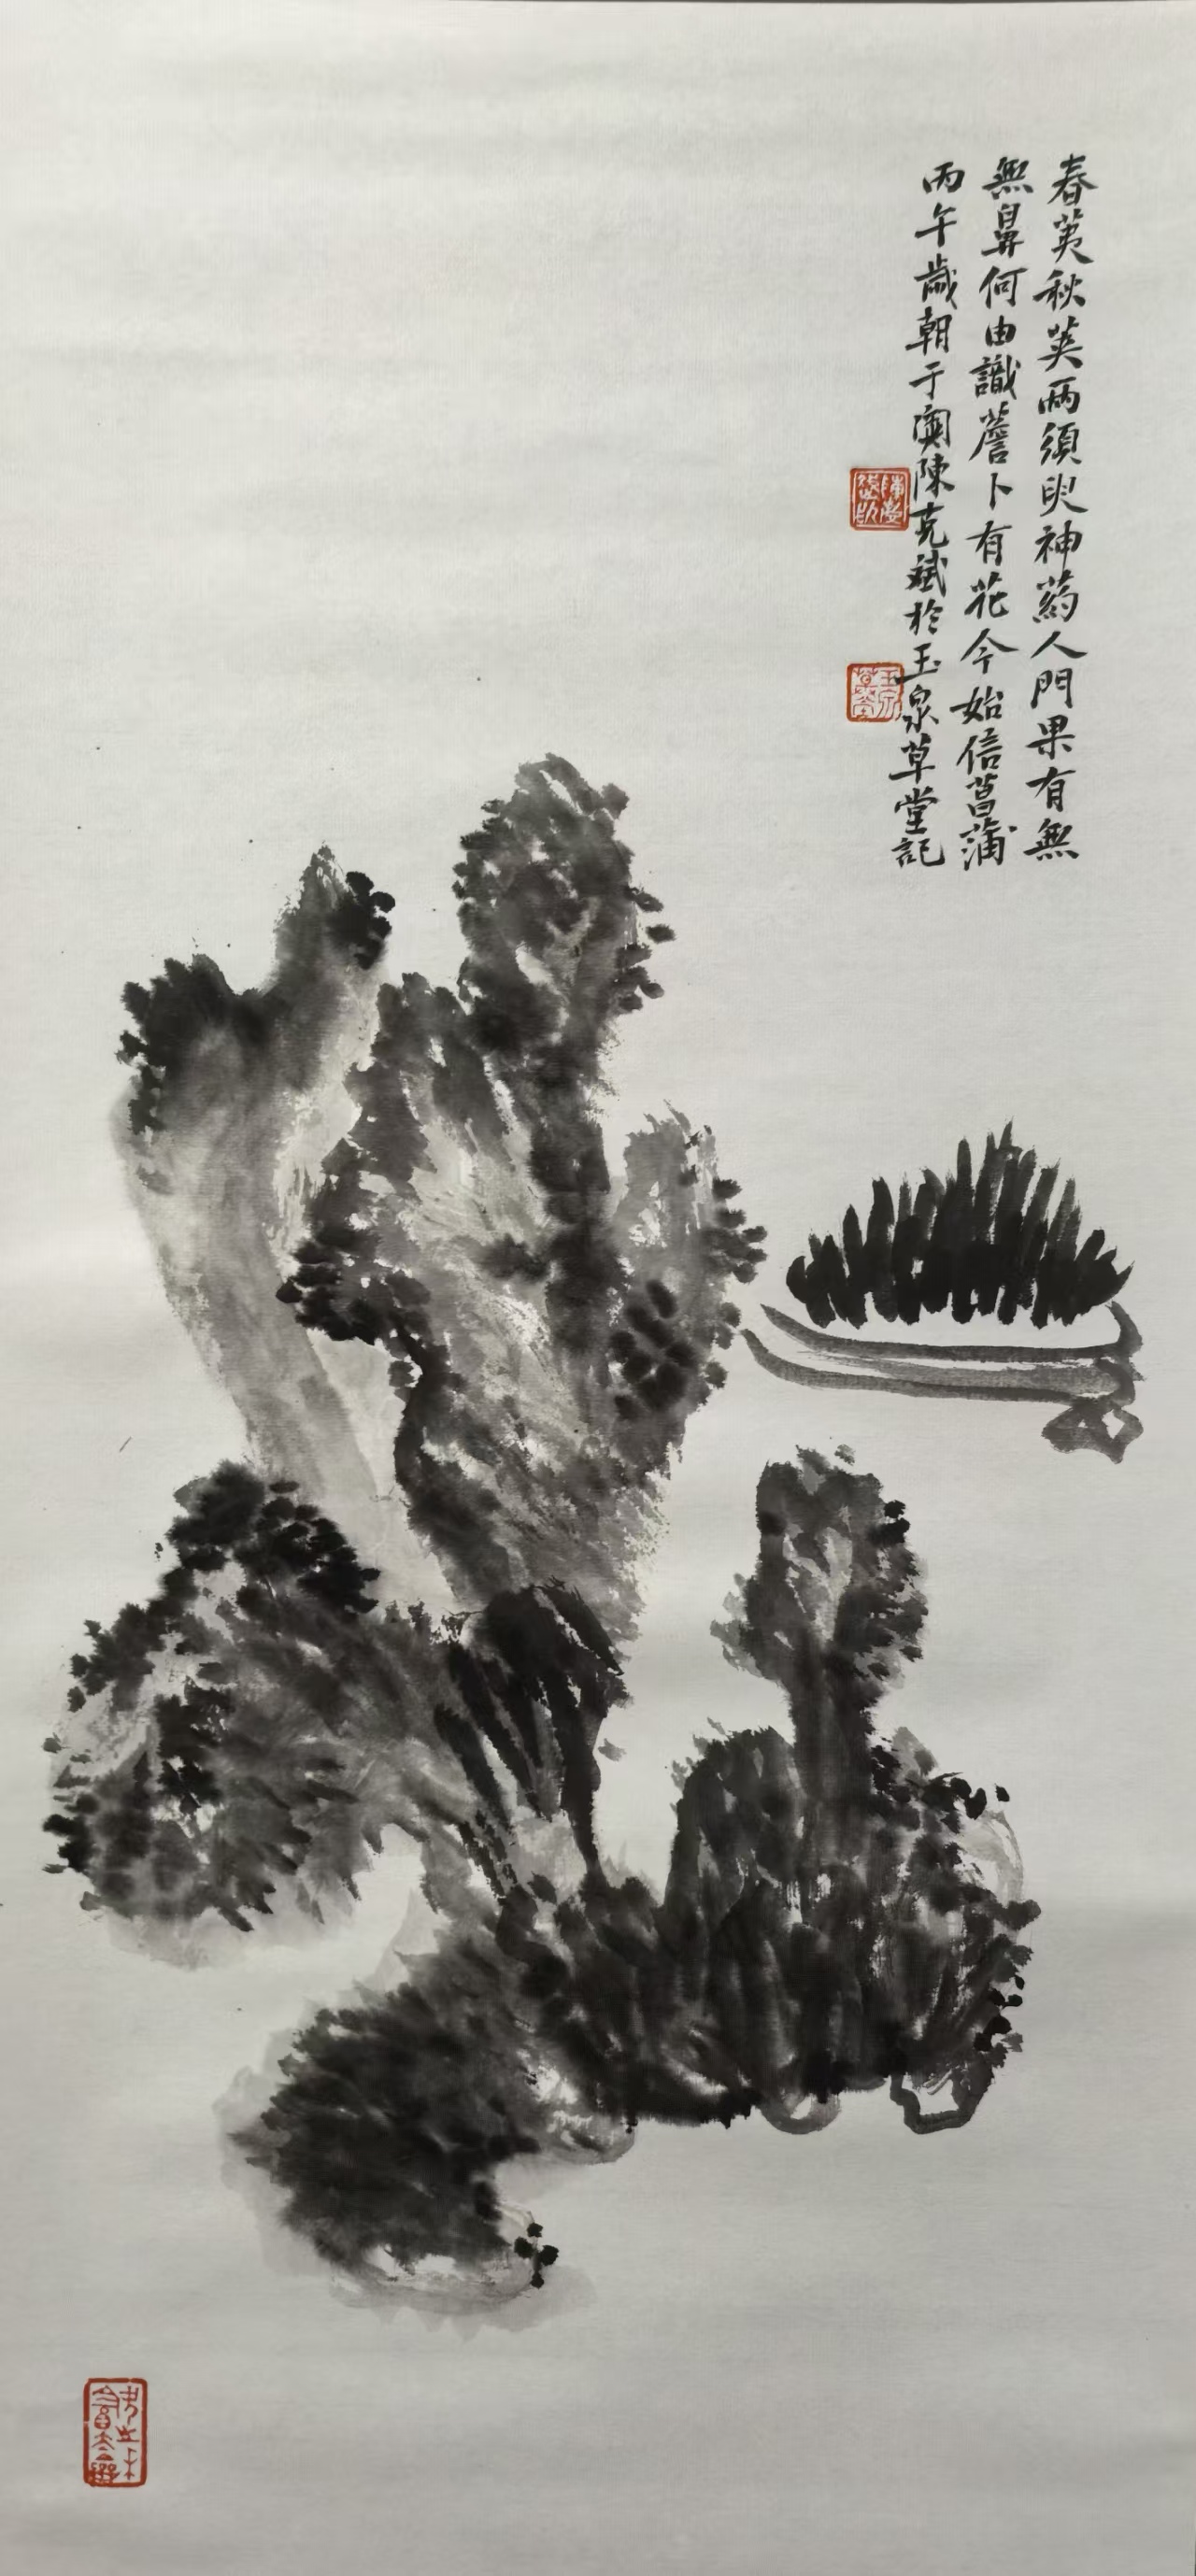 春荑秋荚兩須臾神藥人間果有無
無鼻何由識薝卜有花今始信菖蒲
丙午歲朝于奥陳克斌於玉泉草堂記